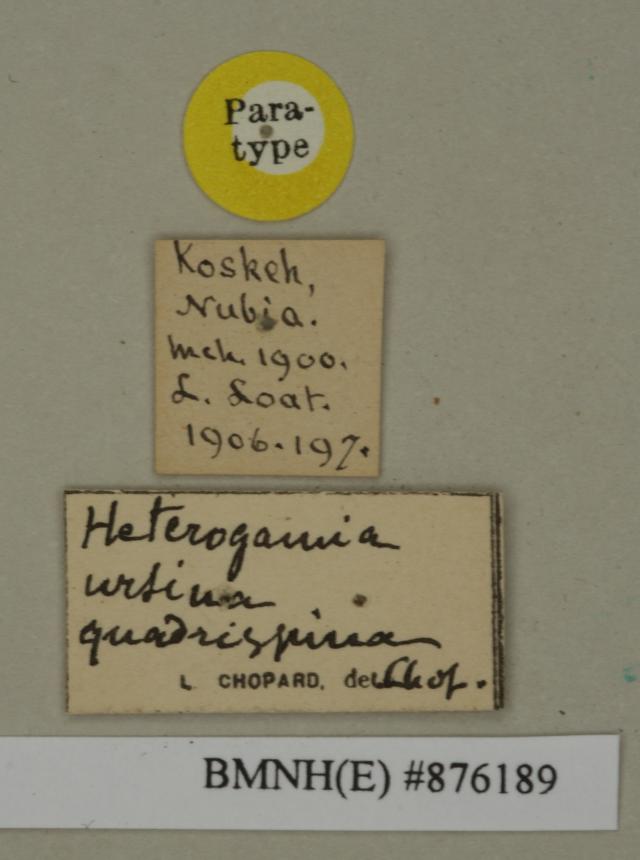 Para-
type
Koskeh,
Nubia.
Mch. 1900.
L. Loat.
1906.197.
Heterogamia
ursina
quadrispina
L CHOPARD, det Chop.
BMNH(E) #876189